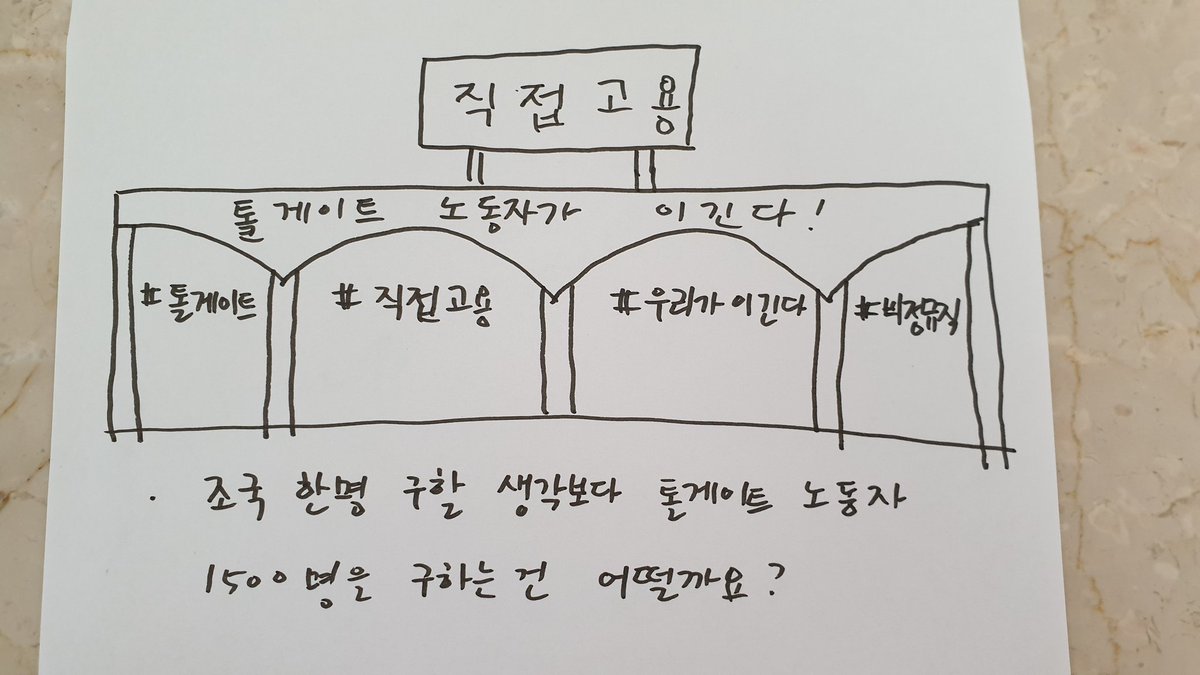 직접고용
톨게이트 노동자가 이긴다!
#톨게이트 #직접고용 #우리가이긴다 #비정규직
· 조국 한명 구할 생각보다 톨게이트 노동자
1500명을 구하는건 어떨까요?